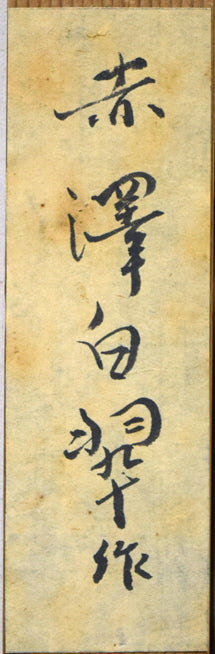 赤澤白翠作